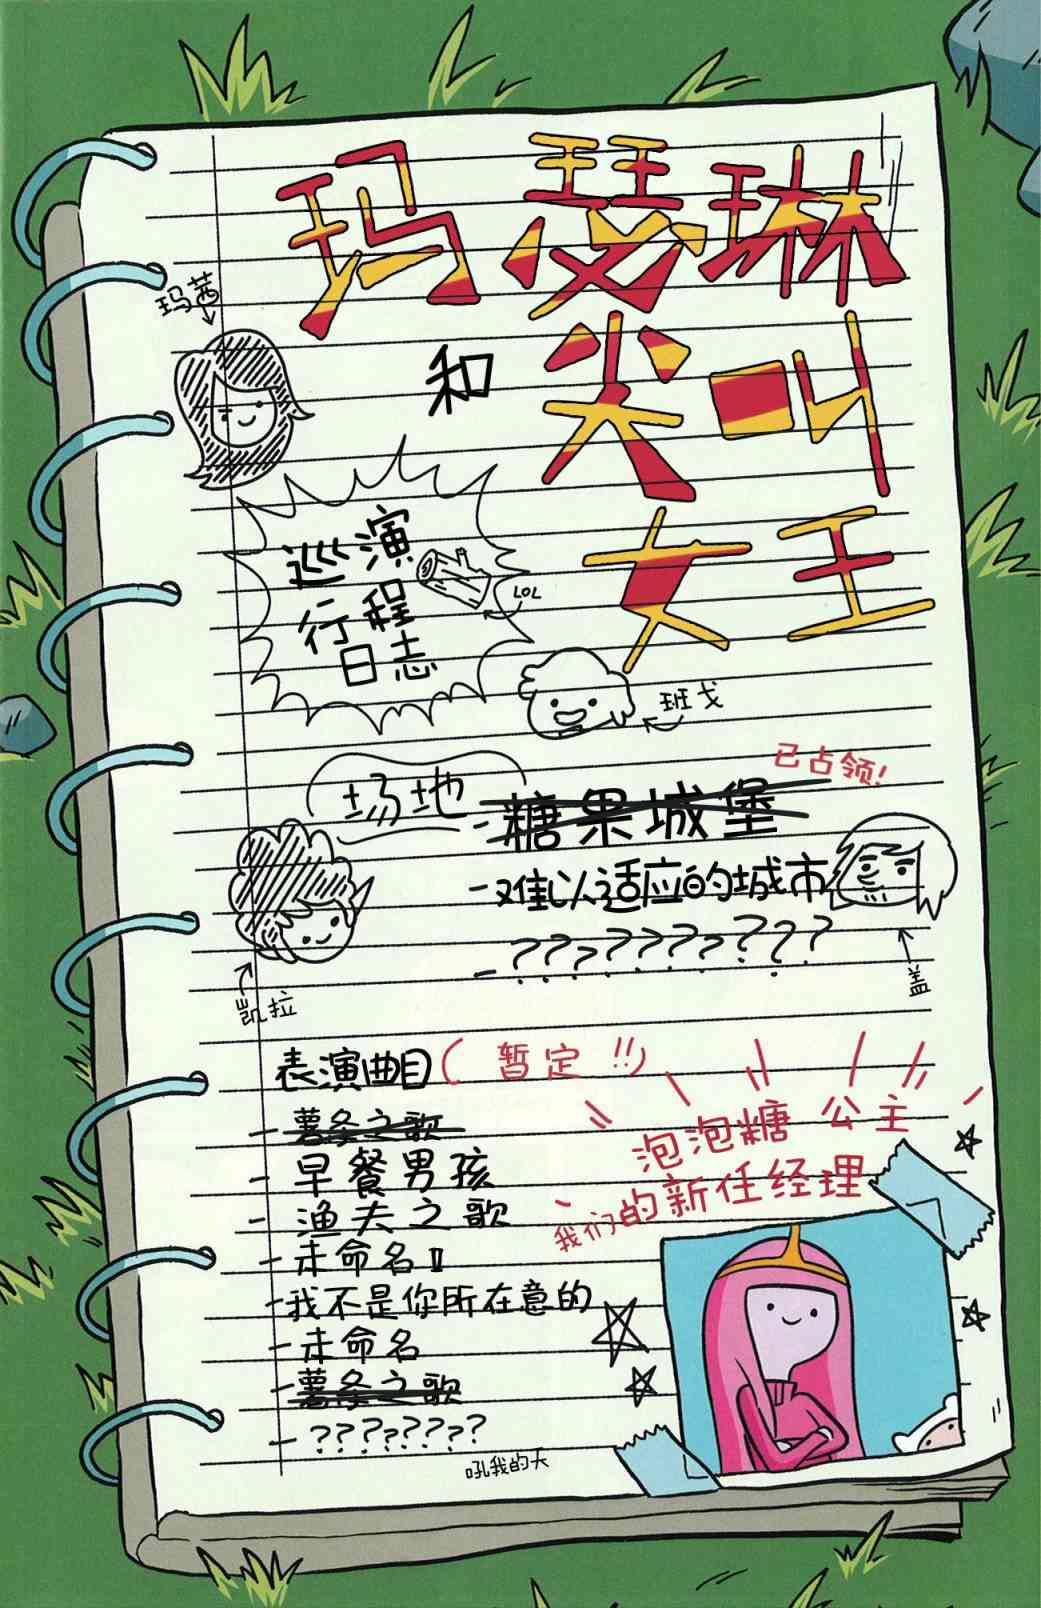 玛瑟琳
和 尖叫
女王
玛茜
巡演
行程
日志
LOL
班戈
场地
已占领!
-糖果城堡
-难以适应的城市
-??????????
盖
凯拉
表演曲目(暂定!!)
-薯条之歌
-早餐男孩
-渔夫之歌
-未命名Ⅱ
-我不是你所在意的
-未命名
-薯条之歌
-????????
吼我的天
泡泡糖 公主
我们的新任经理